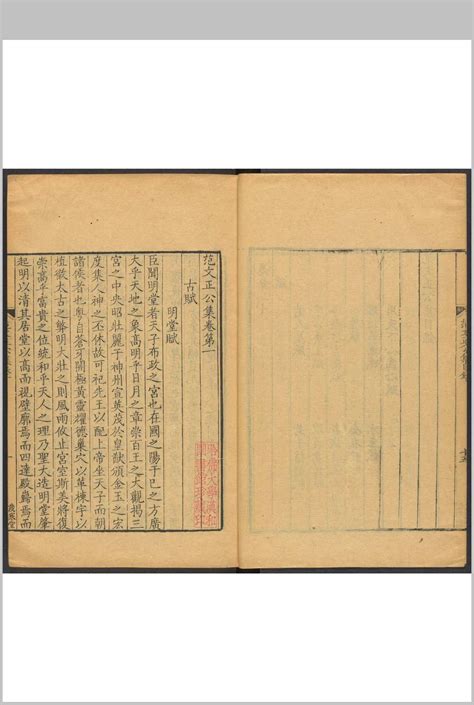 范文正公集卷第一
古賦
明堂賦
臣聞明堂者天子布政之宮也在國之陽于巳之方廣
大乎天地之象高明乎日月之章崇百王之大觀揭三
宮之中央昭壯麗于神州宣英茂於皇猷頒金玉之宏
度集人神之丕休故可祀先王以配上帝坐天子而朝
諸侯者也粵自蒼牙開極黃靈耀德巢穴以革棟宇以
植徹太古之弊明大壯之則風雨攸止宮室斯美將復
崇高乎富貴之位統和乎天人之理乃聖大造明堂肇
起明以清其居堂以高而視壁廓焉而四達殿巋焉而
歲寒堂